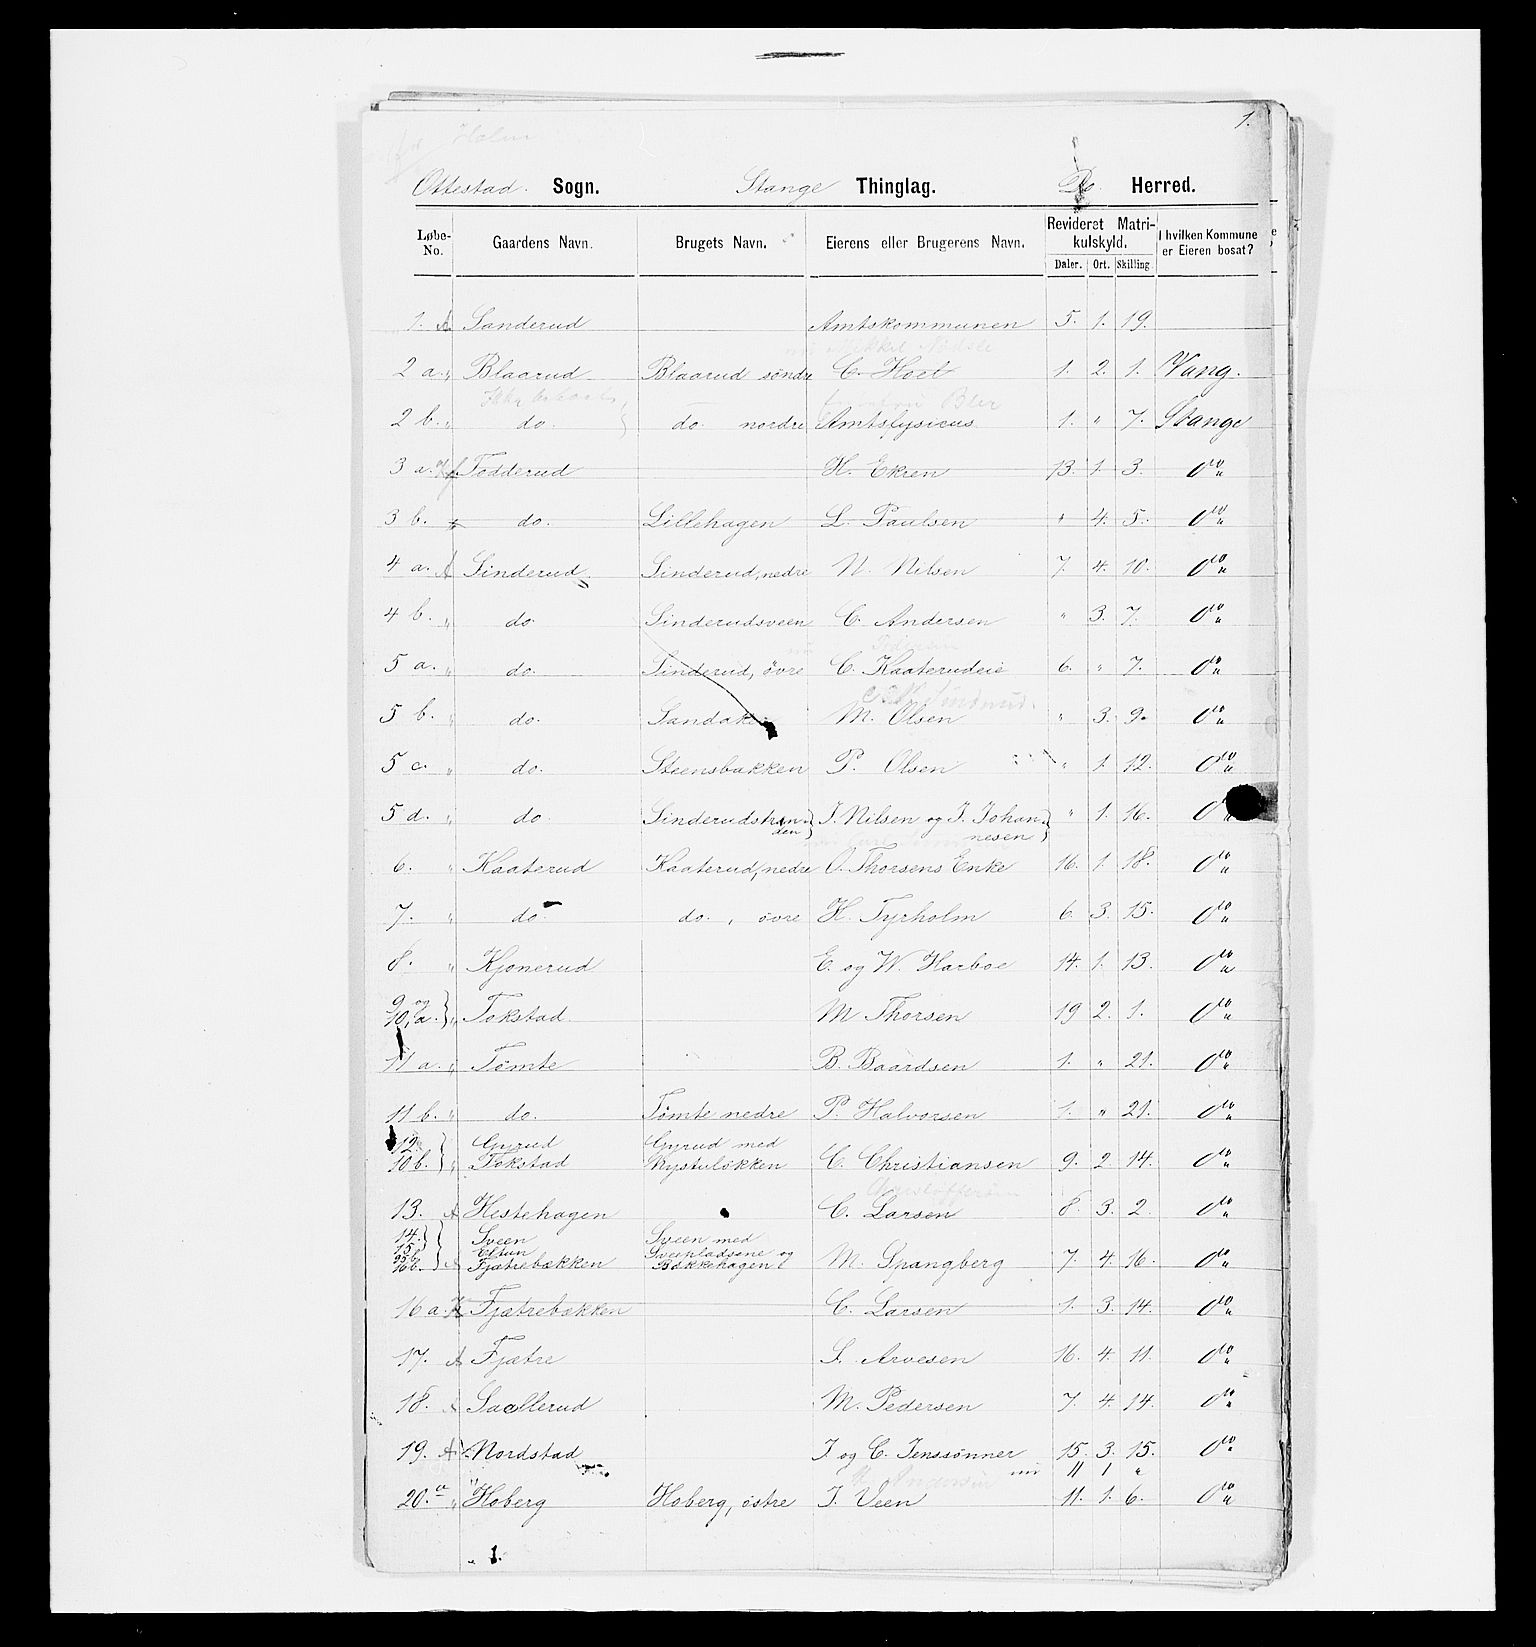 1.
Holm
Ottestad. Sogn. Stange Thinglag. Do. Herred.
Løbe-No. Gaardens Navn. Brugets Navn. Eierens eller Brugerens Navn. Revideret Matrikulskyld. I hvilken Kommune er Eieren bosat?
Daler. Ort. Skilling
1. A Sanderud Amtskommunen 5. 1. 19.
nu Mikkel
2 a. " Blaarud Blaarud söndre C. Hoel 1. 2. 1. Vang.
2 b. " do. do. nordre Amtsfysicus 1. " 7. Stange
3 a. Todderud H. Ekren 13. 1. 3. do "
3 b. do. Lillehagen L. Paulsen " 4. 5. do "
4 a. A Sinderud Sinderud, nedre N. Nilsen 7. 4. 10. do "
4 b. " do. Sinderudsveen C. Andersen " 3. 7. do "
nu
5 a. " do. Sinderud, övre C. Kaaterudeie 6. " 7. do "
5 b. " do. Sandaker M. Olsen " 3. 9. do "
5 c. " do. Steensbakken P. Olsen " 1. 12. do "
5 d. " do. Sinderudstranden } J. Nilsen og J. Johannesen } " 1. 16.
6. " Kaaterud Kaaterud, nedre O. Thorsens Enke 16. 1. 18. do "
7. " do. do. , övre H. Tyrholm 6. 3. 15. do "
8. " Kjonerud E. og W. Harboe 14. 1. 13. do "
9 og 10, a. } " Tokstad M Thorsen 19 2. 1. do "
11 a. " Tömte B. Baardsen 1. " 21. do "
11 b. " do. Tömte nedre P. Halvorsen 1. " 21. do "
12. Gyrud Gyrud med
10 b. } " Tokstad Nystulökken C. Christiansen 9. 2. 14. do "
13. A Hestehagen C. Larsen 8. 3. 2. do "
14. Sveen Sveen med
15. Eltun Sveenpladsene og
16 b. } A Fjætrebækken Bækkehagen M. Spangberg 7. 4. 16. do "
16 a. Fjætrebækken C. Larsen 1. 3. 14. do "
17. A Fjætre S. Arvesen 16. 4. 11. do "
18. Saellerud M. Pedersen 7. 4. 14. do "
19. A Nordstad J. og C. Jenssönner 15. 3. 15. do "
Andersen nu 11 1 "
20. a " Hoberg Hoberg, östre J. Veen 11. 1. 6. do "
1.